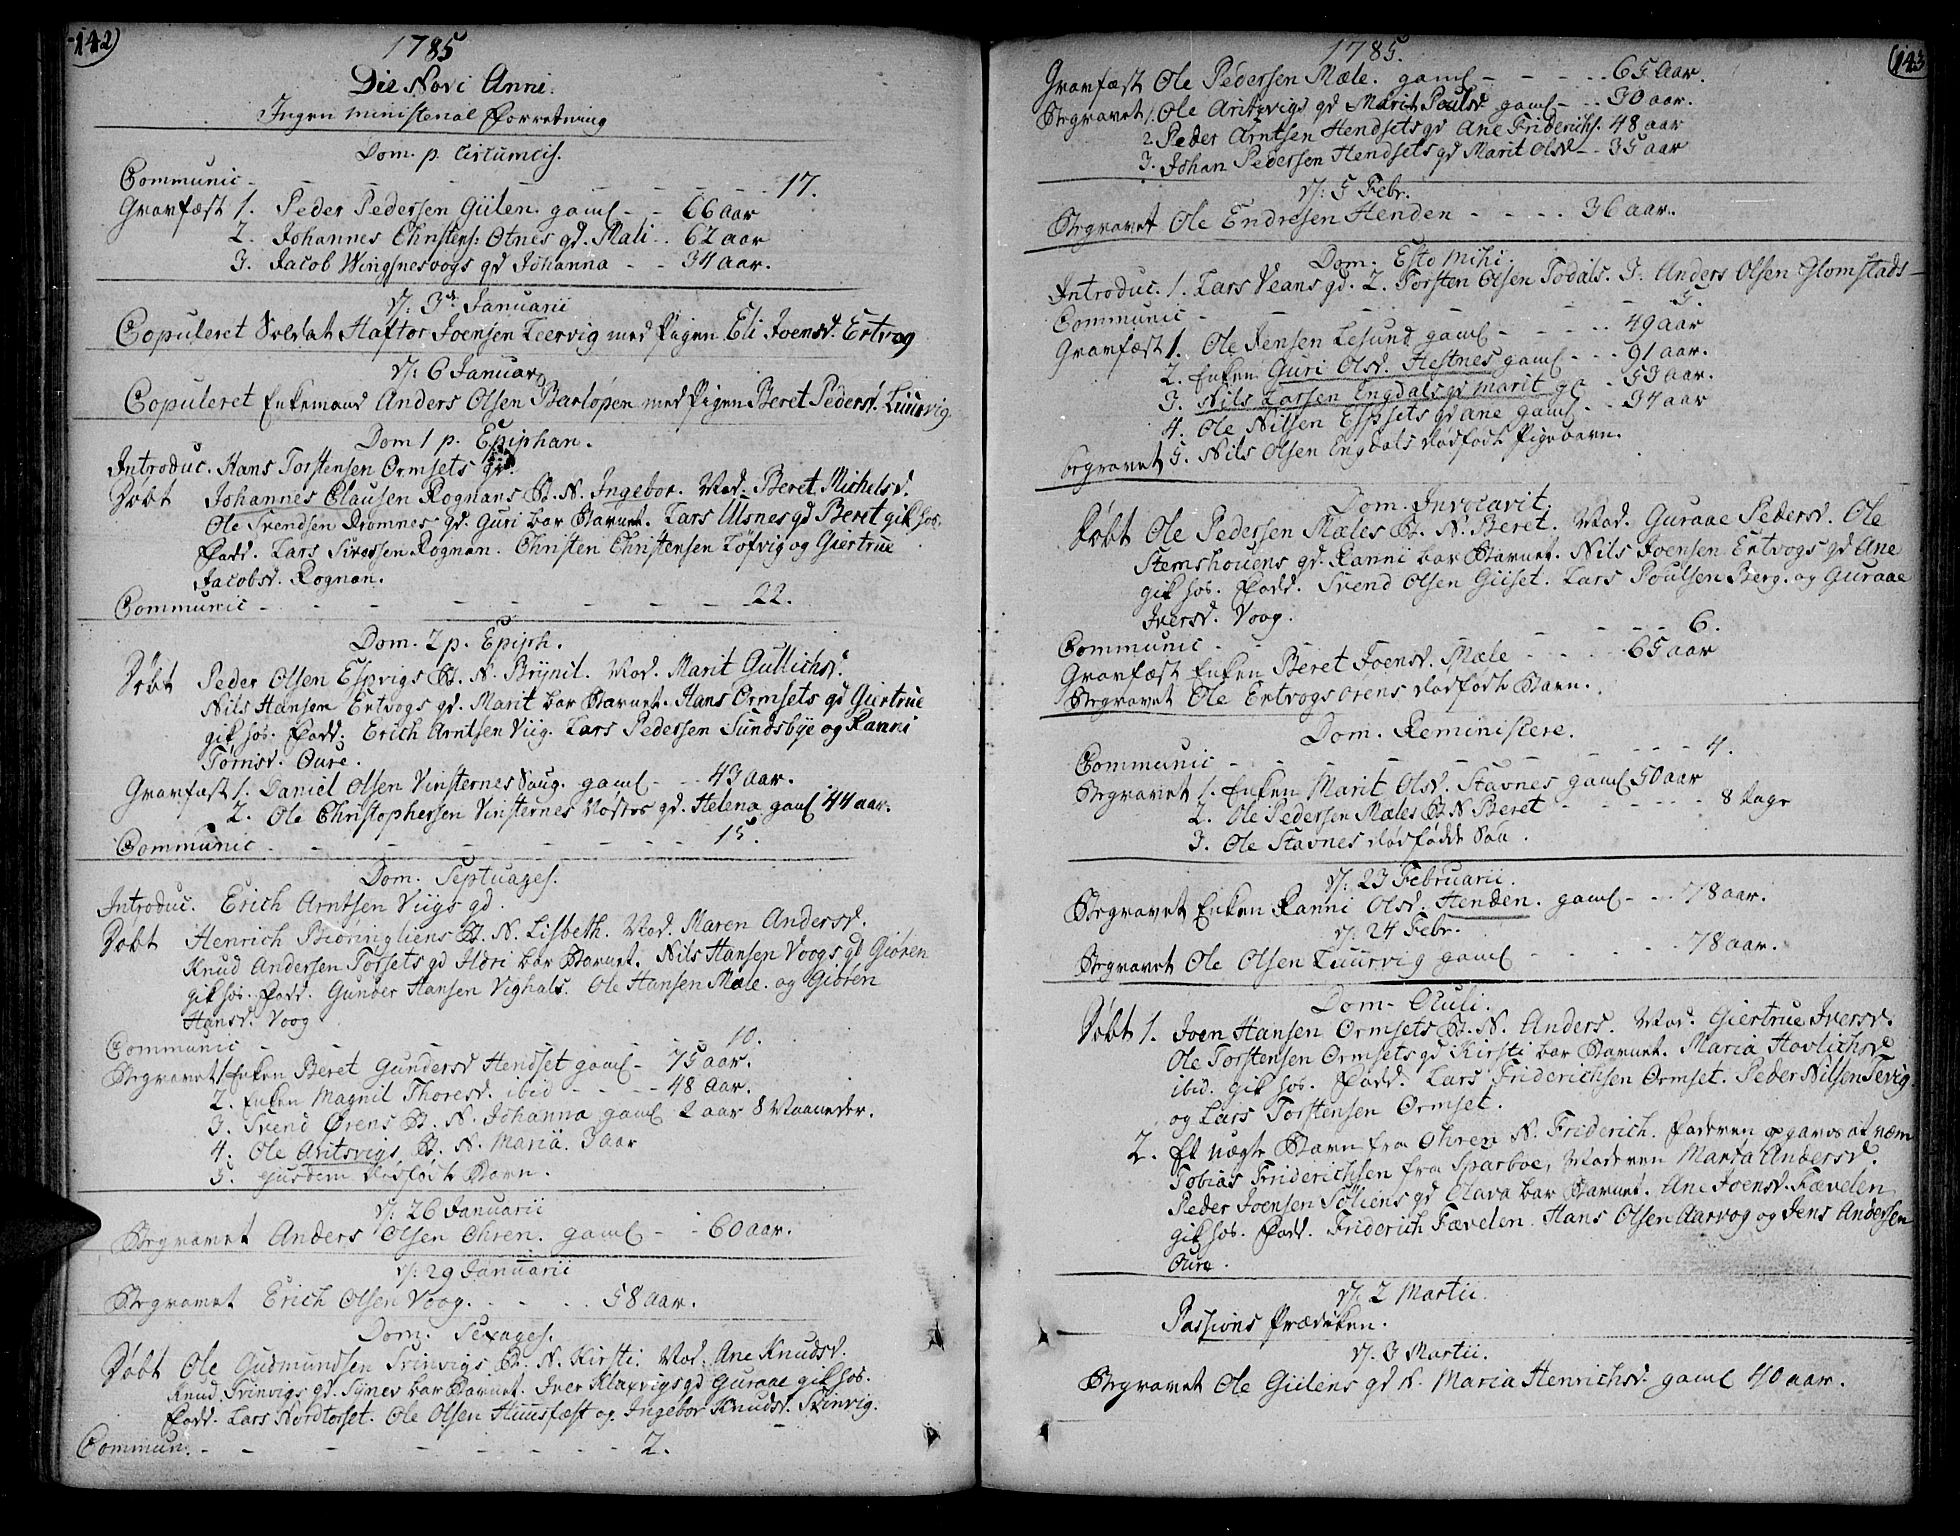 142)
1785
Die Novi Anni.
Ingen ministerial Forretning
Dom. p. Circumcis.
Communic - - - - - - - - - 17.
Gravfæst 1. Peder Pedersen Giilen. gaml - - 66 Aar
2. Johannes Christens: Otnes gd. Mali .. 62 aar
3. Jacob Wingsnesvogs gd Johanna - - 34 aar.
d: 3die Januarii
Copuleret Soldat Haftor Joensen Leervig med Pigen Eli Joensd. Ertvog
d: 6 Januar
Copuleret Enkemand Anders Olsen Barlopen med Pigen Beret Pedersd. Luurvig
Dom 1 p. Epiphan.
Introduc. Hans Torstensen Ormsets gd.
Døbt Johannes Clausen Rognans B. N. Ingebor. Mod. Beret Michelsd.
Ole Svendsen Romnes gd. Guri bar Barnet. Lars Ulsnes gd Beret gik hos.
Fadd. Lars Siversen Rognan. Christen Christensen Løfvig og Giertrue
Jacobsd. Rognan.
Communic - - - - - - - - 22.
Dom. 2 p. Epiph.
Døbt Peder Olsen Espvigs B. N. Brynil. Mod. Marit Gullichsd.
Nils Hansen Ertvogs gd. Marit bar Barnet. Hans Ormsets gd Giertrue
gik hos. Fadd. Erich Arntsen Viig. Lars Pedersen Sundsbye og Ranni
Tørrisd. Oure.
Gravfæst 1. Daniel Olsen Vinsternes Saug. gaml - - 43 aar.
2. Ole Christophersen Vinsternes Nøstes gd. Helena gaml 44 aar.
Communic - - - - - - - 15.
Dom. Septuages.
Introduc. Erich Arntsen Viigs gd.
Døbt Henrich Biøringliens B. N. Lisbeth. Mod. Maren Andersd.
Knud Andersen Torsets gd Ildri bar Barnet. Nils Hansen Voogs gd Giøren
gik hos. Fadd. Gunder Hansen Vighals. Ole Hansen Mæle. og Giøren
Hansd. Voog
Communic - - - - - - - 10.
Begravet 1. Enken Beret Gundersd Hendset gaml - 75 aar.
2. Enken Magnil Thoresd. ibid - - - - 48 aar.
3. Svend Ørens B. N. Johanna gaml 2 aar 8 Maaneder.
4. Ole Aritsvigs B. N. Maria. 3 aar
5. ejusdem dødfødt Barn.
d: 26 Januarii
Begravet Anders Olsen Ohren. gaml - - 60 aar.
d: 29 Januarii
Begravet Erich Olsen Voog. - - - - 58 aar.
Dom. Sexages.
Døbt Ole Gudmundsen Trinvigs B. N. Kirsti. Mod. Ane Knudsd.
Knud Trinvigs gd. Synev bar Barnet. Iver Klaxvigs gd Guraae gik hos.
Fadd. Lars Nordtorset. Ole Olsen Huusfæst og Ingebor Knudsd. Trinvig.
Commun. - - - - - - - - 2.
143
1785.
Gravfæst Ole Pedersen Mæle. gaml - - - - 65 Aar.
Begravet 1. Ole Aritzvigs gd Marit Poulsd gaml - - 30 aar.
2. Peder Arntsen Hendsets gd Ane Friderichs. 48 aar
3. Johan Pedersen Hendsets gd Marit Olsd - - 35 aar
d: 5 Febr.
Begravet Ole Endresen Henden - - - - 36 aar.
Dom. Esto Mihi
Introduc. 1. Lars Veans gd. 2. Torsten Olsen Todals. 3. Anders Olsen Glomstads -
Communic - - - - - - - 5.
Gravfæst 1. Ole Jensen Lesund gaml - - - - 49 aar
2. Enken Guri Olsd. Hestnes gaml - - - 91 aar.
3. Nils Larsen Engdals gd marit ga - 53 aar.
4. Ole Nilsen Espsets gd ane gaml - - 34 aar
begravet 5. Nils Olsen Engdals dødfødt Pigebarn.
Dom. Invocavit
Døbt Ole Pedersen Mæles B. N. Beret. Mod. Guraae Pedersd. Ole
Stemshougens gd. Ranni bar Barnet. Nils Joensen Ertvogs gd Ane
gik hos. Fadd. Svend Olsen Giiset. Lars Poulsen Berg. og Guraae
Iversd. Voog.
Communic - - - - - - - 6.
Gravfæst Enken Beret Joensd. Mæle - - - - 65 aar
Begravet Ole Ertvogsørens dødfødt Barn.
Dom. Reministere.
Communic - - - - - - - - 4.
Begravet 1. Enken Marit Olsd. Stavnes gaml 50 aar
2. Ole Pedersen Mæles B N Beret - - - - - - 8 Dage
3. Ole Stavnes dødfødde Søn.
d: 23 Februarii.
Begravet Enken Ranni Olsd. Henden. gaml - - - 78 aar.
d: 24 Febr.
Begravet Ole Olsen Luurvig gaml - - - - 78 aar.
Dom- Oculi.
Døbt 1. Joen Hansen Ormsets B. N. Anders. Mod. Giertrue Iversd.
Ole Torstensen Ormsets gd Kirsti bar Barnet. Maria Hovlichsd
ibid. gik hos. Fadd. Lars Friderichsen Ormset. Peder Nilsen Tevig
og Lars Torstensen Ormset.
2. Et uægte Barn fra Ohren N. Friderich. Faderen opgaves at være
Tobias Friderichsen fra Sparboe, Moderen Maria Andersd.
Peder Joensen Sølliens gd Olava bar Barnet. Ane Joensd. Fævelen
gik hos. Fadd. Friderich Fævelen. Hans Olsen Aarvog og Jens Andersen
Oure.
d: 2 Martii.
Passions Prædiken.
d. 3 Martii.
Begravet Ole Giilens gd N. Maria Henrichsd. gaml 40 aar.